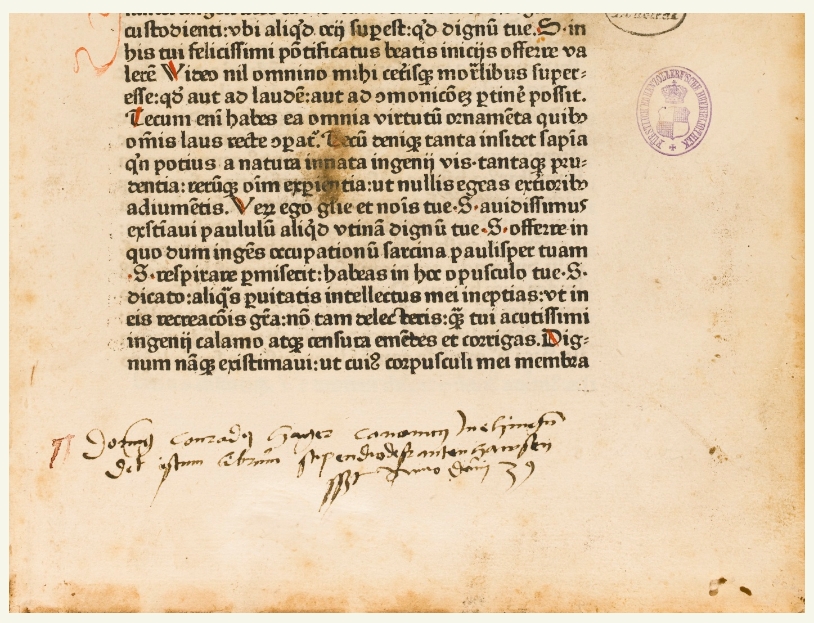 custodienti:vbi aliq̇d ocij suꝑest:qđ dignū tue.S.in
his tui felicissimi pōtificatus beatis inicijs offerre va
lerē Video nil omnino mihi cet̃isqꝫ mor̃libus super⸗
esse:qđ aut ad laudē:aut ad ꝯmonicōeꝫ ꝑtinē possit.
Tecum eni habes ea omnia virtutū ornamēta quibꝰ
om̃is laus recte oꝑat᷑. Tecū deniqꝫ tanta insidet sapīa
q̇n potius a natura innata ingenij vis.tantaqꝫ pru⸗
dentia:rerūqꝫ oīm exꝑientia:ut nullis egeas ext̃ioribꝰ
adiumētis. Veꝝ ego gl̃ie et noīs tue.S.auidissimus
exstīaui paululū aliq̇d vtinā dignū tue.S.offerre in
quo dum ingēs occupationū sarcina paulisper tuam
.S.respirare ꝑmiserit:habeas in hoc opusculo tue.S.
dicato:aliq̇s puitatis intellectus mei ineptias:vt in
eis recreacōis gr̃a:nō tam delecteris:qꝫ̃ tui acutissimi
ingenij calamo atqꝫ censura emēdes et corrigas.Dig⸗
num nāqꝫ existimaui:ut cuiꝰ corpusculi mei membra
conradꝰ hager canonicꝰ
istum librum
Anno dm̄ 39
FÜRSTLICH HOHENZOLLERNSCHE HOFBIBLIOTHEK